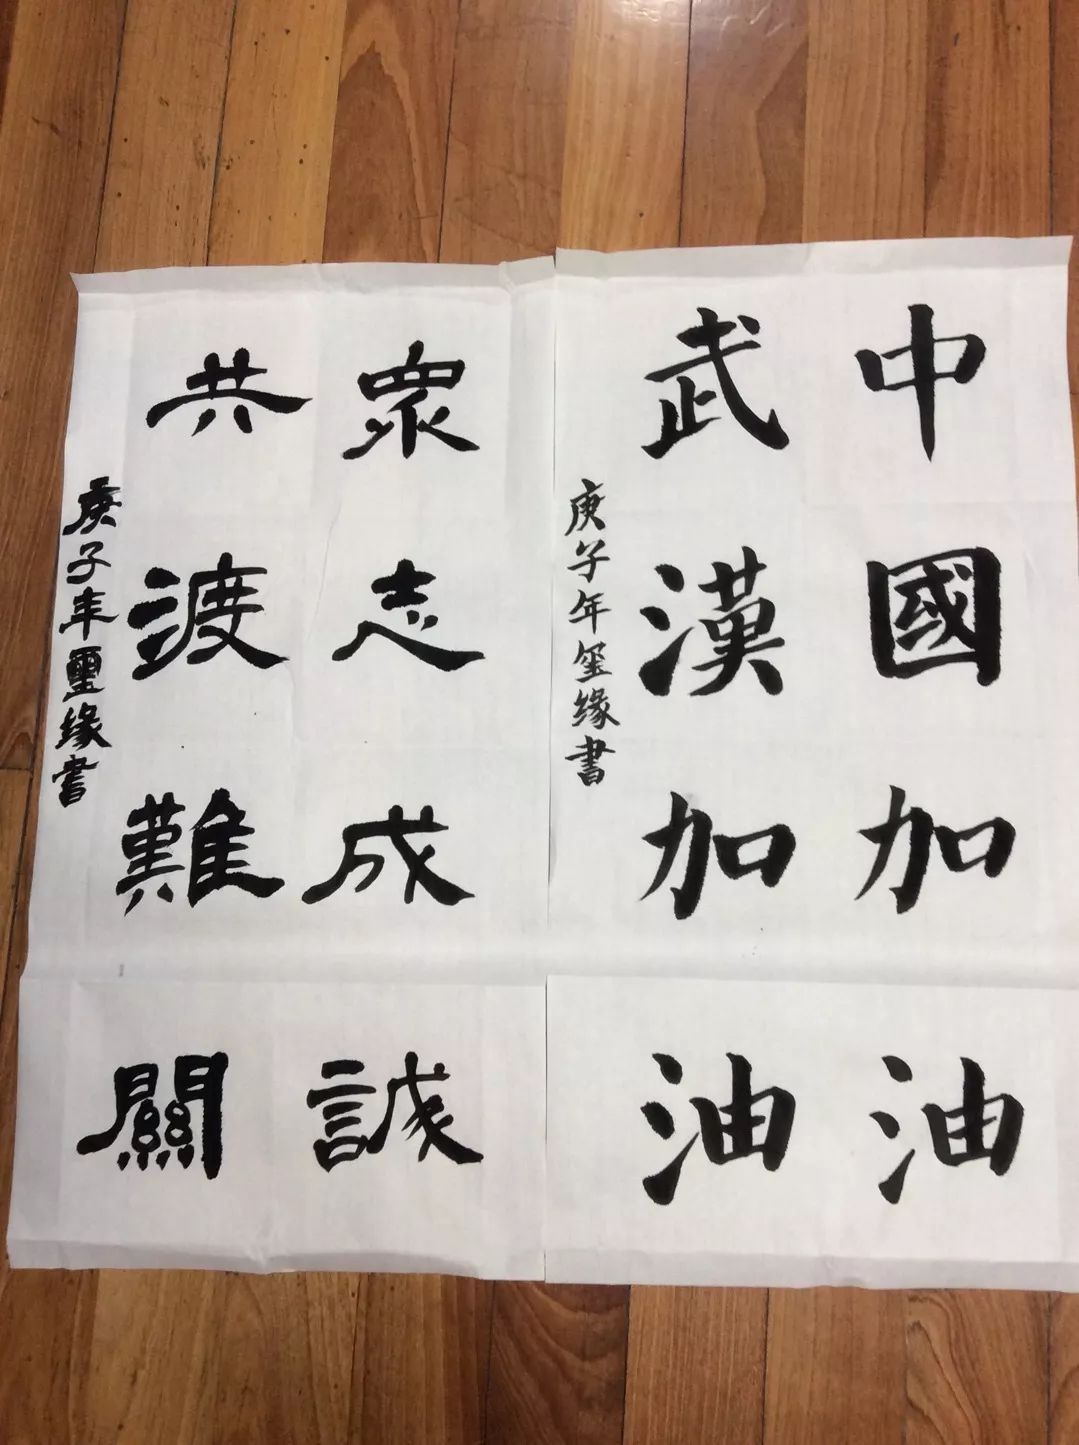 中國加油
武漢加油
庚子年玺缘書
衆志成誠
共渡難關
庚子年璽缘書